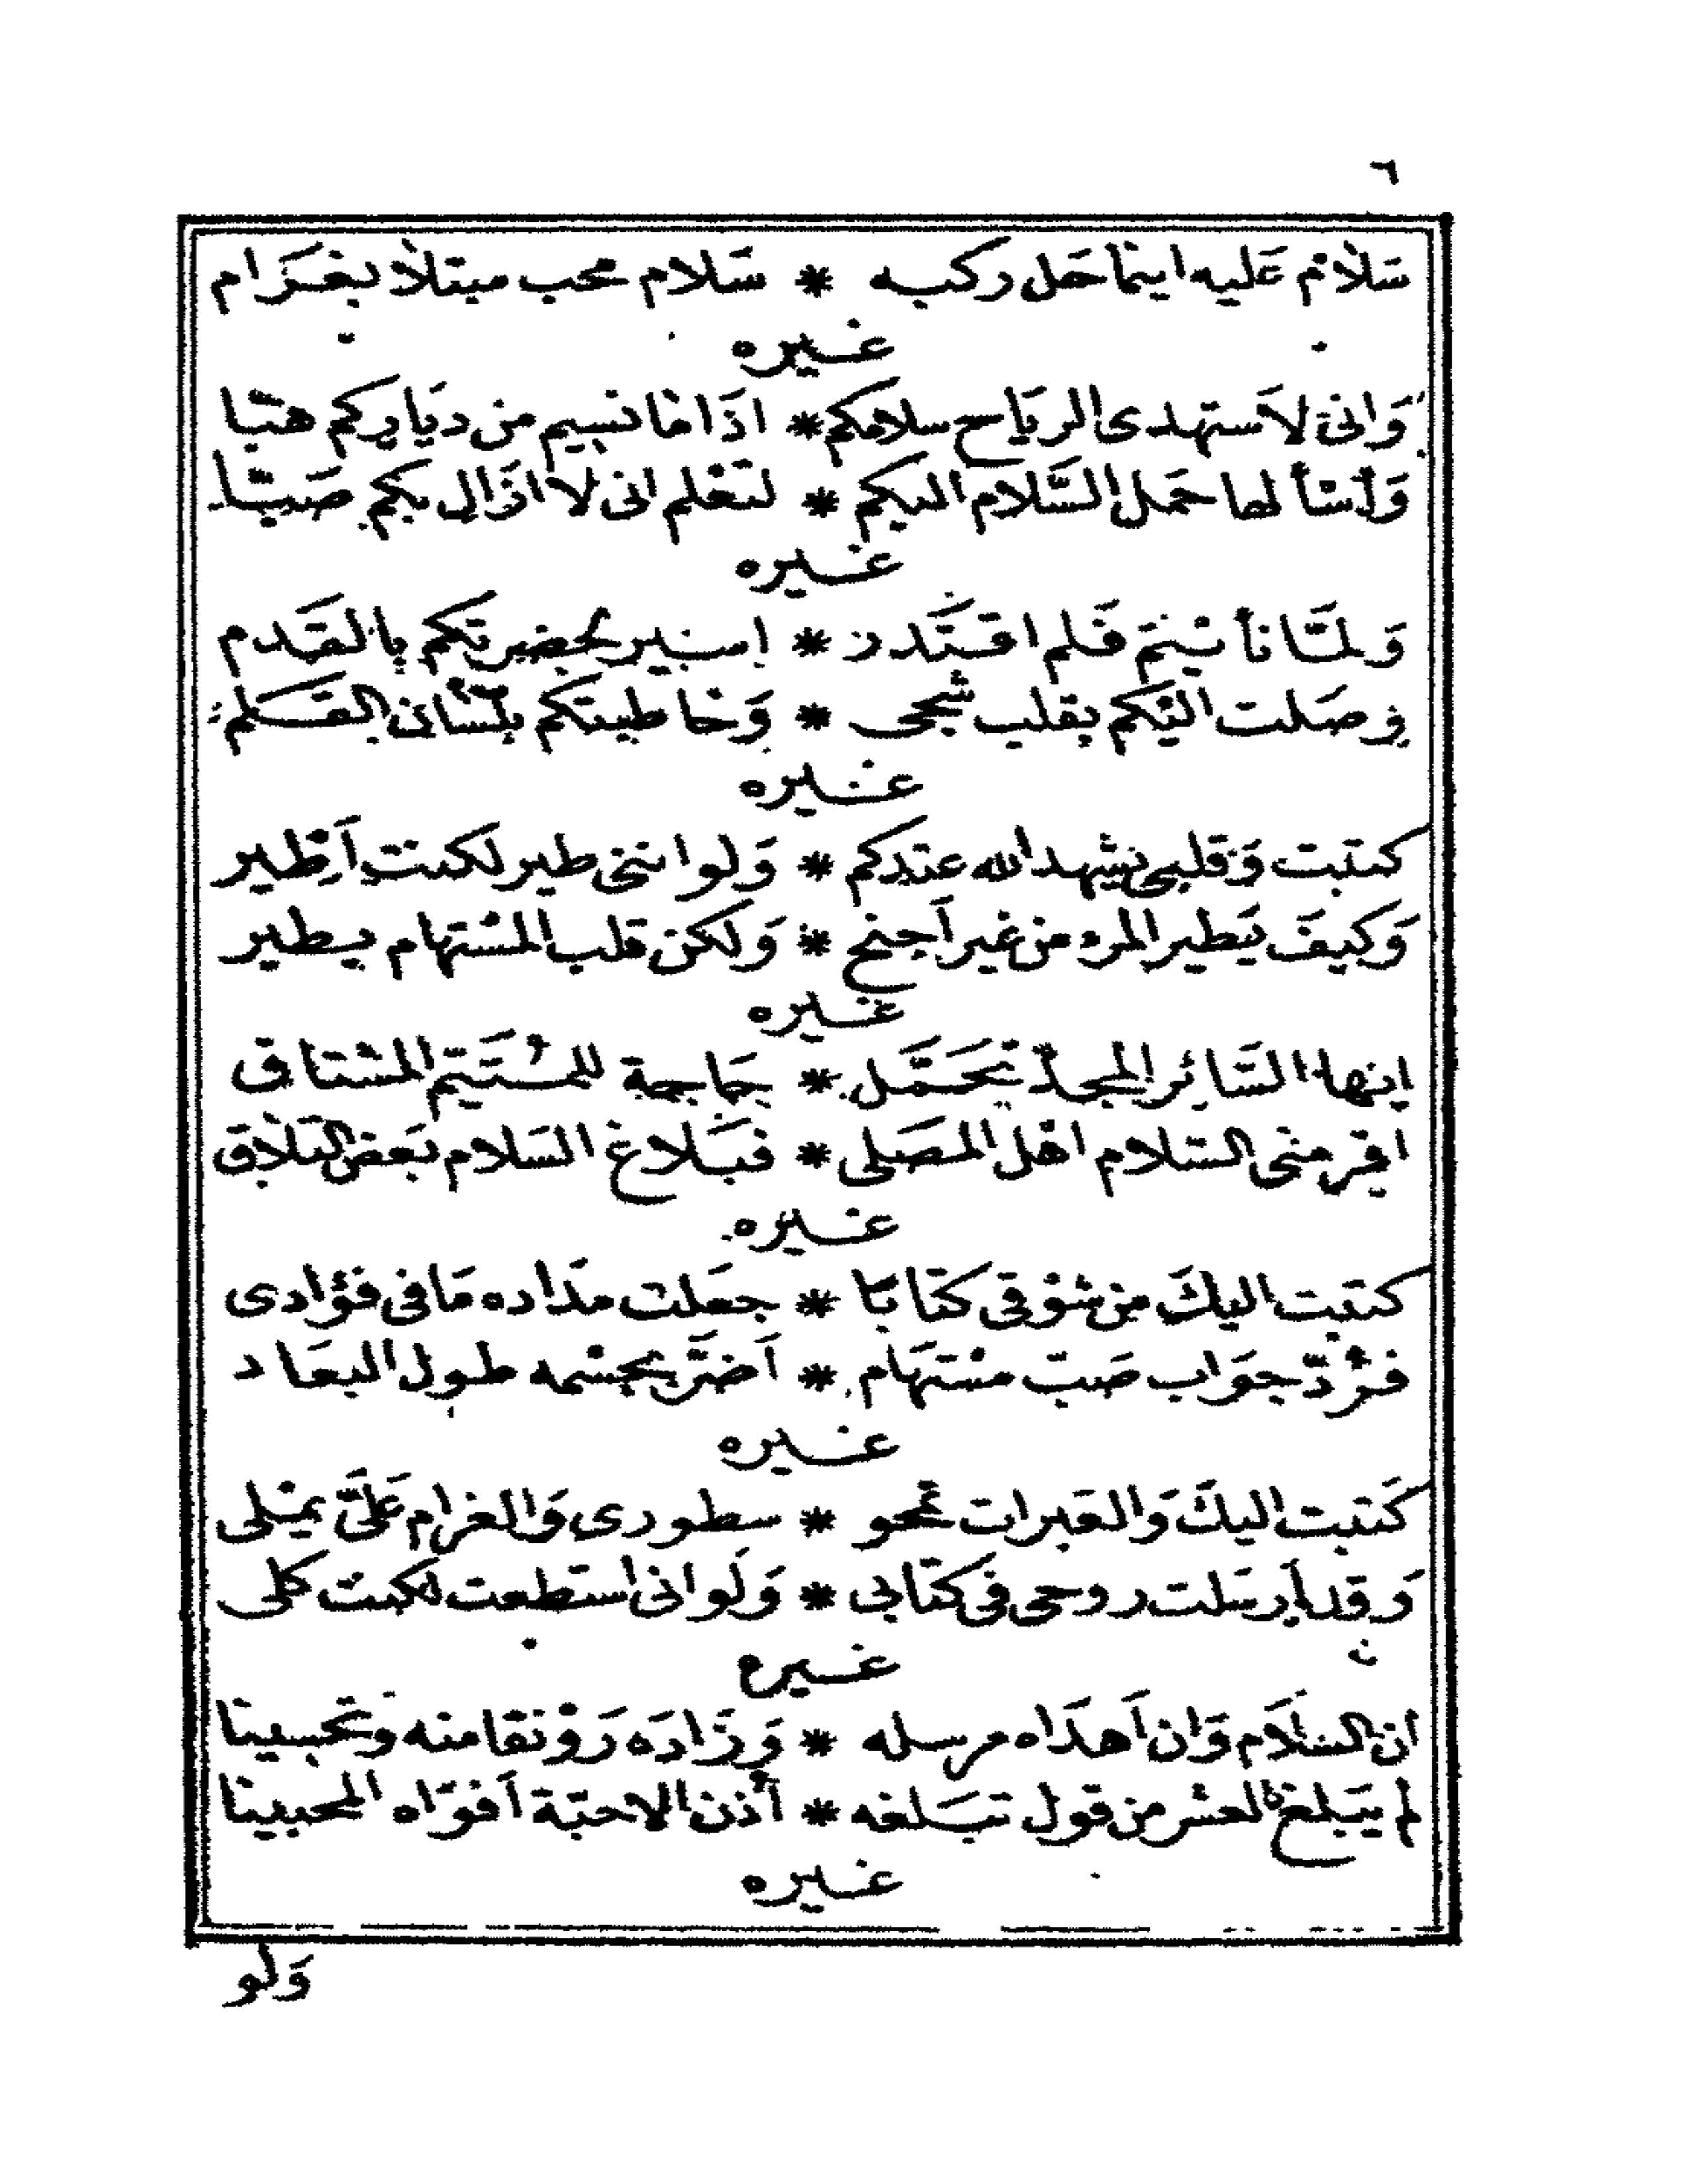 ٦
سَلامٌ عَليه اينما حَل ركبه * سَلام محب مبتلا بغَرَام
غيره
وَانى لاَستهدى الريَاح سلامكم * اذَا ما نسيم من ديَاركم هبّا
وَأسْأ لها حَمل السَّلام اليكم * لتَعْلم انى لا ازَال بكم صَبّا
غيره
وَلمّا نأ يْتم فَلم اقتَدر * اسير لحضرتكم بالقَدم
وصَلت اليْكم بقلب شجى * وَخاطبتكم بلسَان القَلم
غيره
كتبت وَقلبى يشهد الله عندكم * وَلوا ننى طير لكنت اَطير
وَكيفَ يَطير المرء من غير اَجنح * وَلكن قلب المسْتهام يطير
غيره
ايها السَّائر المجدّ تحَمَّل * حَاجة للمُتَيَّم المشْتاق
اقر منى السّلام اهْل المصَلى * فبَلاغ السَلام بَعض التلاق
غيره
كتبت اليكَ من شوْقى كتابًا * جعَلت مدَاده مَا فى فؤادى
فرُدّ جوَاب صَبّ مسْتهَام * اَضرَّ بجسْمه طول البعَاد
غيره
كَتبت اليكَ وَالعَبرات تمحو * سطورى وَالغرام عَلىَّ يمْلى
وَقد أرسَلت روحى فى كتابى * وَلَو انى استطعت لكنت كلى
غيره
ان السَلاَم وَان اَهدَاه مرسله * وَزَادَه رَوْ نقا منه وتحسينا
لم يَبلغ العشر من قول تبَلغه * أُذن الاحبّة اَفوَاه المحبينا
غيره
وَلو